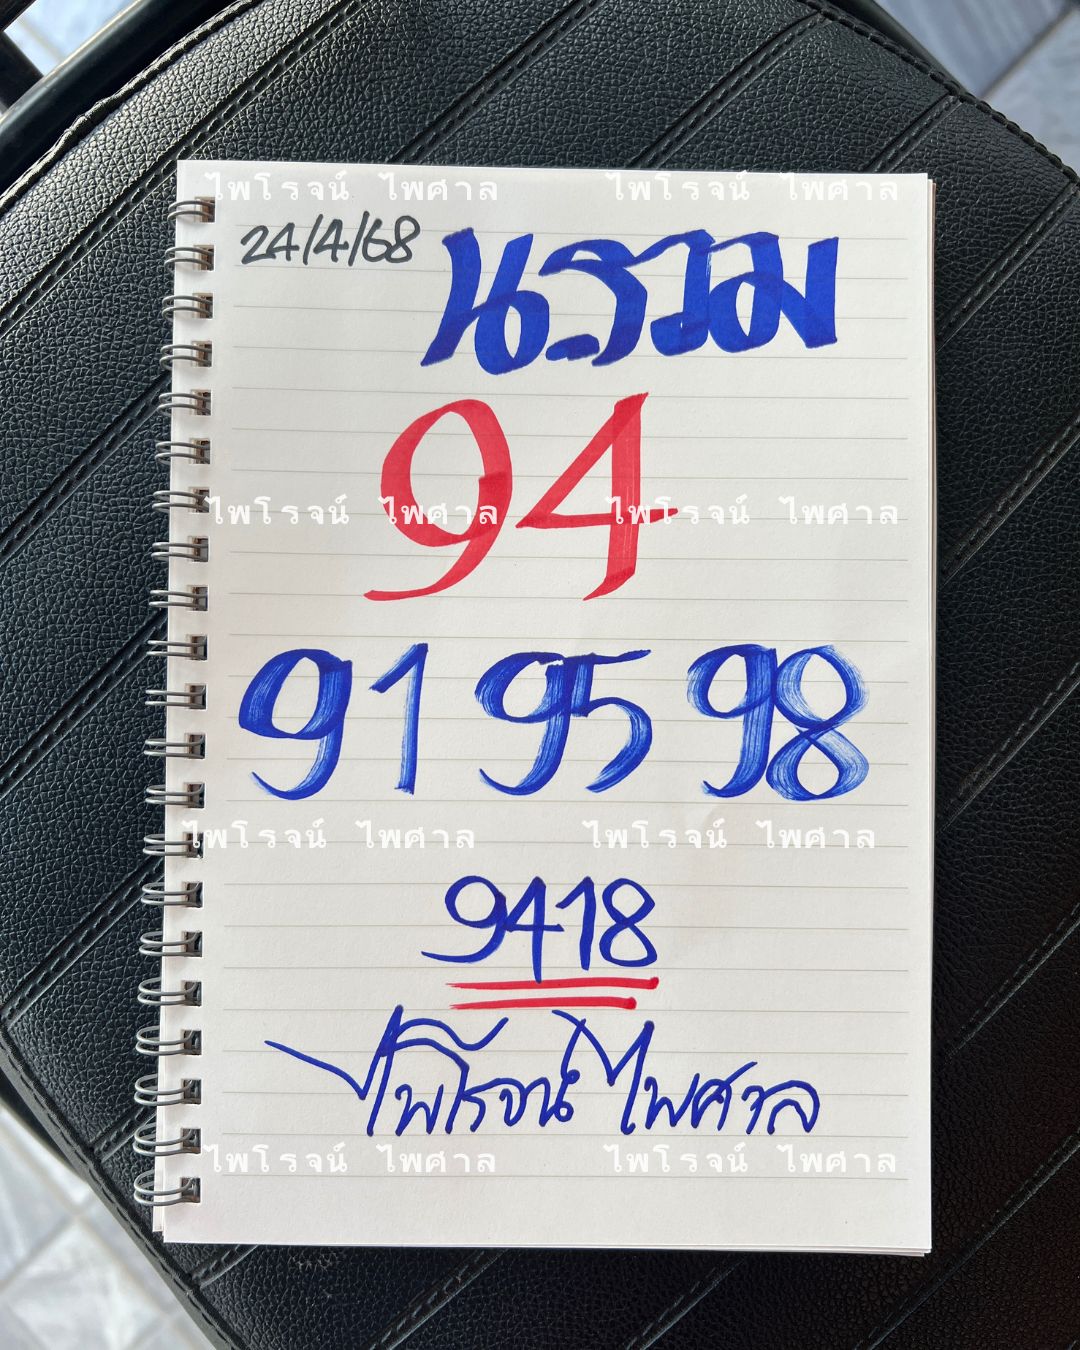 ไพโรจน์ ไพศาล ไพโรจน์ ไพศาล
24/4/68
น.รวม
94
ไพโรจน์ ไพศาล ไพโรจน์ ไพศาล
91 95 98
ไพโรจน์ ไพศาล ไพโรจน์ ไพศาล
9418
ไพโรจน์ ไพศาล
ไพโรจน์ ไพศาล ไพโรจน์ ไพศาล